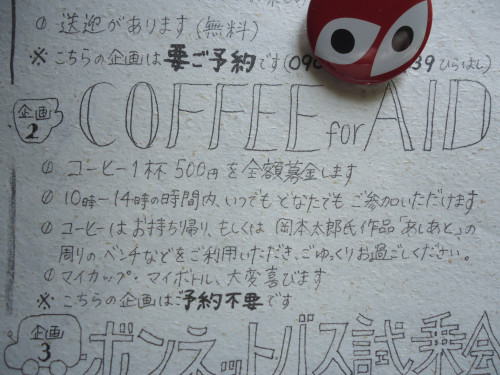 送迎があります(無料)
※こちらの企画は要ご予約です(090 39ひらはし)
企画2 COFFEE for AID
コーヒー1杯500円を全額募金します
10時ー14時の時間内、いつでもどなたでもご参加いただけます
コーヒーはお持ち帰り、もしくは岡本太郎氏作品「あしあと」の
周りのベンチなどをご利用いただき、ごゆっくりお過ごしください。
マイカップ・マイボトル、大変喜びます
※こちらの企画はご予約不要です
企画3 ボンネットバス試乗会